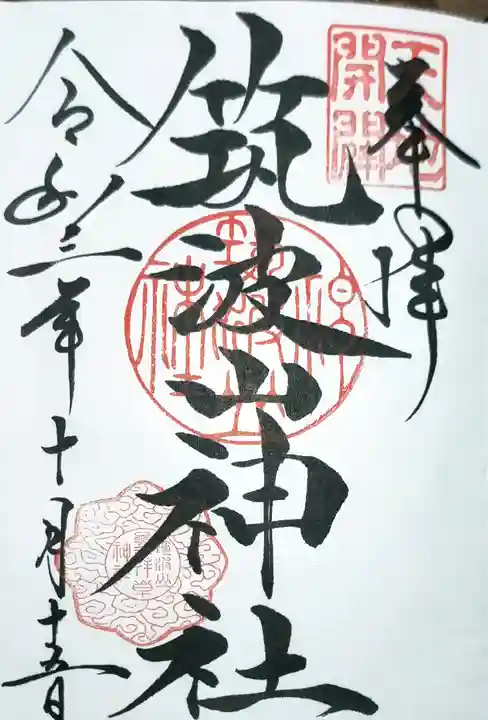 奉拝
天地開闢
筑波山神社
令和三年十月十五日